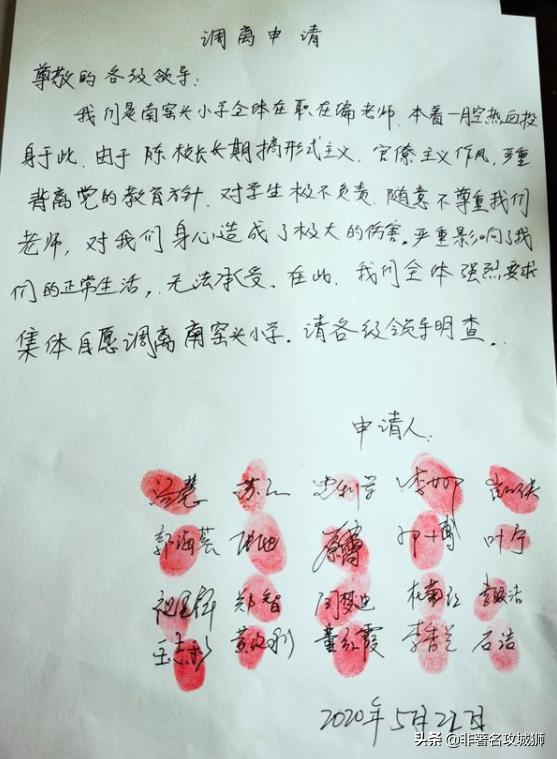 调离申请
尊敬的各级领导:
我们是南窑头小学全体在职在编老师.本着一腔热血投
身于此.由于陈校长长期搞形式主义.官僚主义作风,严重
背离党的教育方针.对学生极不负责.随意不尊重我们
老师,对我们身心造成了极大的伤害.严重影响了我
们的正常生活,.无法承受.在此.我们全体强烈要求
集体自愿调离南窑头小学.请各级领导明查..
申请人:
郭海芸 叶宁
郑智
董红霞 李香兰 石洁
2020年5月21日
头条 @非著名攻城狮